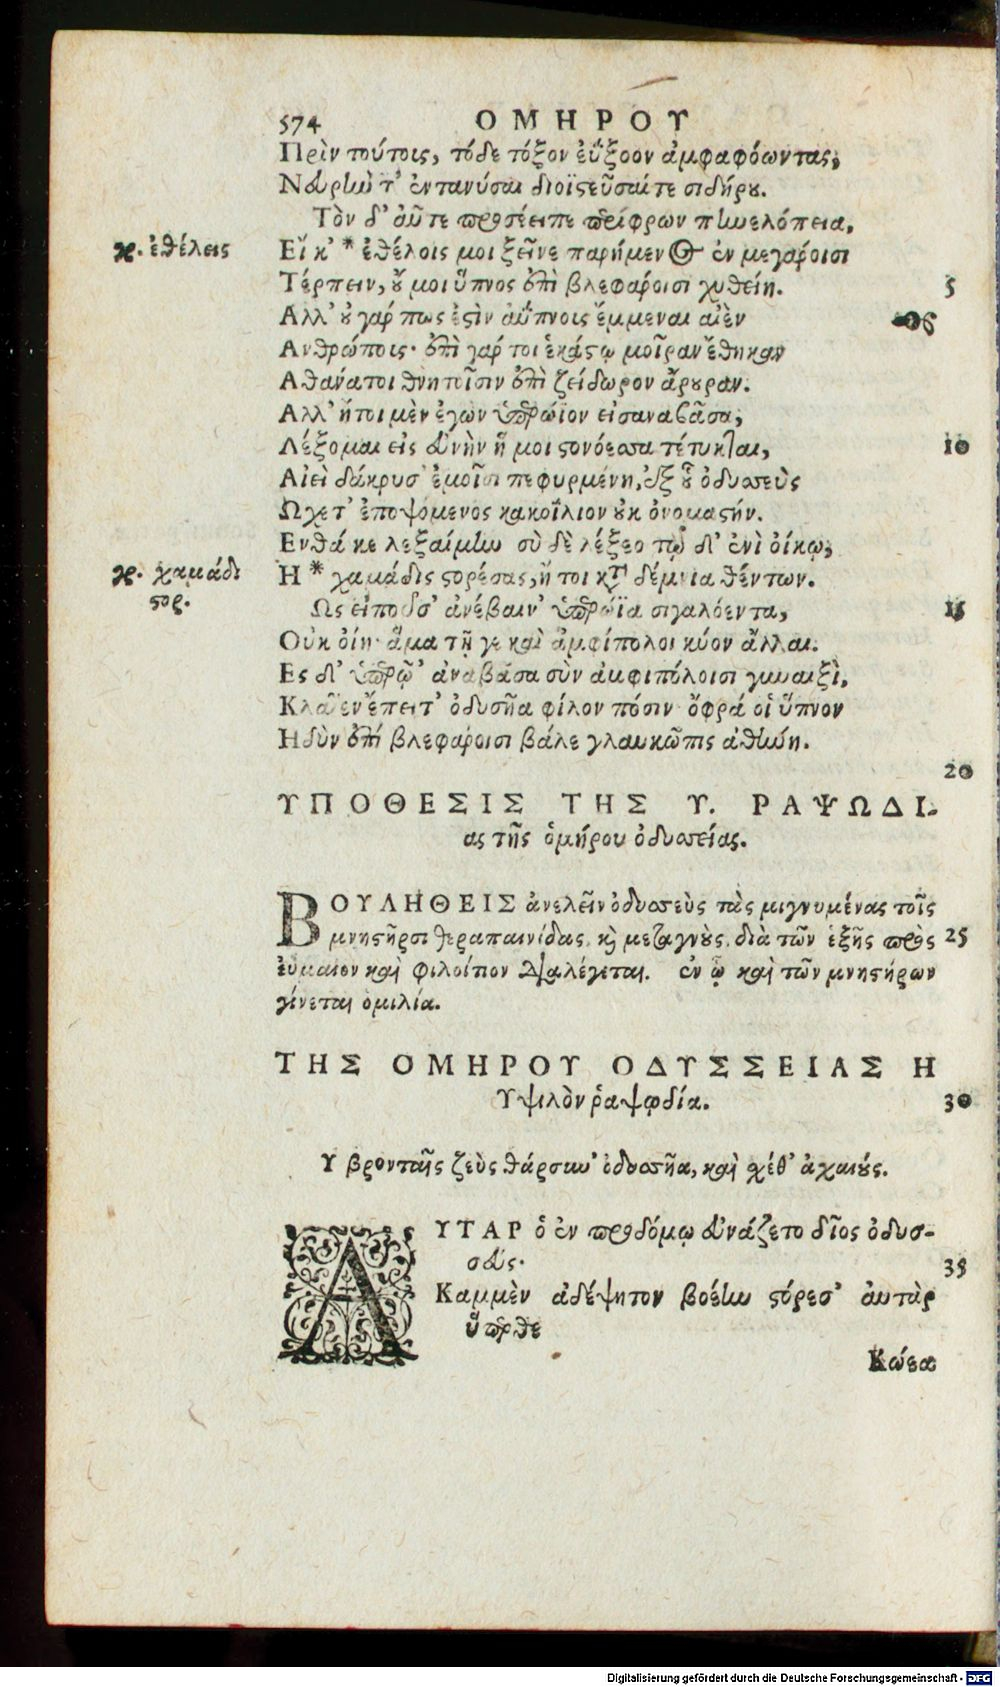 574 ΟΜΗΡΟΥ
Πρὶν τούτοις, τόδε τόξον ἐΰξοον ἀμφαφόωντας,
Νευρὴν τ' ἐντανύσαι διοϊστεῦσαί τε σιδήρου.
Τὸν δ' αὖτε προσέειπε περίφρων πηνελόπεια,
γρ. ἐθέλεις
Εἴ κ' * ἐθέλοις μοι ξεῖνε παρήμενος ἐν μεγάροισι
Τέρπειν, οὔ μοι ὕπνος ἐπὶ βλεφάροισι χυθείη. 5
Αλλ' οὐ γάρ πως ἐστὶν ἀΰπνοις ἔμμεναι αἰὲν
Ανθρώποις· ἐπὶ γάρ τοι ἑκάστῳ μοῖραν ἔθηκαν
Αθάνατοι θνητοῖσιν ἐπὶ ζείδωρον ἄρουραν.
Αλλ' ἤτοι μὲν ἐγὼν ὑπερώϊον εἰσαναβᾶσα,
Λέξομαι εἰς εὐνὴν ἥ μοι στονόεσσα τέτυκται, 10
Αἰεὶ δάκρυσ' ἐμοῖσι πεφυρμένη, ἐξ οὗ ὀδυσσεὺς
Ωχετ' ἐποψόμενος κακοΐλιον οὐκ ὀνομαστήν.
Ενθά κε λεξαίμην σὺ δὲ λέξεο τῷδ' ἐνὶ οἴκῳ,
γρ. χαμάδι
στορ.
Η * χαμάδις στορέσας, ἤ τοι κατὰ δέμνια θέντων.
Ως εἰποῦσ' ἀνέβαιν' ὑπερώϊα σιγαλόεντα, 15
Οὐκ οἴη· ἅμα τῇ γε καὶ ἀμφίπολοι κύον ἄλλαι.
Ες δ' ὑπερῷ' ἀναβᾶσα σὺν ἀμφιπόλοισι γυναιξὶ,
Κλαῖεν ἔπειτ' ὀδυσῆα φίλον πόσιν· ὄφρά οἱ ὕπνον
Ηδὺν ἐπί βλεφάροισι βάλε γλαυκῶπις ἀθήνη.
20
ΥΠΟΘΕΣΙΣ ΤΗΣ Υ. ΡΑΨΩΔΙ-
ας τῆς ὁμήρου ὀδυσσείας.
ΒΟΥΛΗΘΕΙΣ ἀνελεῖν ὀδυσσεὺς τὰς μιγνυμένας τοῖς
μνηστῆρσι θεραπαινίδας, καὶ μεταγνοὺς, διὰ τῶν ἑξῆς πρὸς 25
εὔμαιον καὶ φιλοίτιον διαλέγεται. ἐν ᾧ καὶ τῶν μνηστήρων
γίνεται ὁμιλία.
ΤΗΣ ΟΜΗΡΟΥ ΟΔΥΣΣΕΙΑΣ Η
Υψιλὸν ῥαψῳδία. 30
Υ βρονταῖς ζεὺς θάρσυν' ὀδυσσῆα, καὶ χέθ' ἀχαιούς.
ΑΥΤΑΡ ὁ ἐν προδόμῳ εὐνάζετο δῖος ὀδυσ-
σεύς· 35
Καμμὲν ἀδέψητον βοέην στόρεσ' αὐτὰρ
ὕπερθε
Κώεα
Digitalisierung gefördert durch die Deutsche Forschungsgemeinschaft - DFG